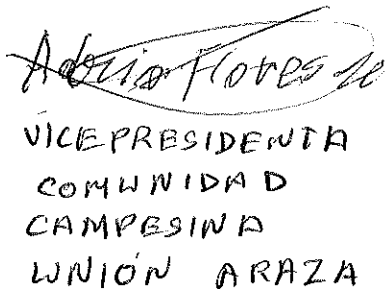 Flores
VICEPRESIDENTA
COMUNIDAD
CAMPESINA
UNIÓN ARAZA